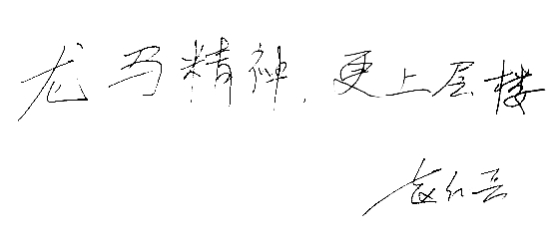 龙马精神，更上层楼